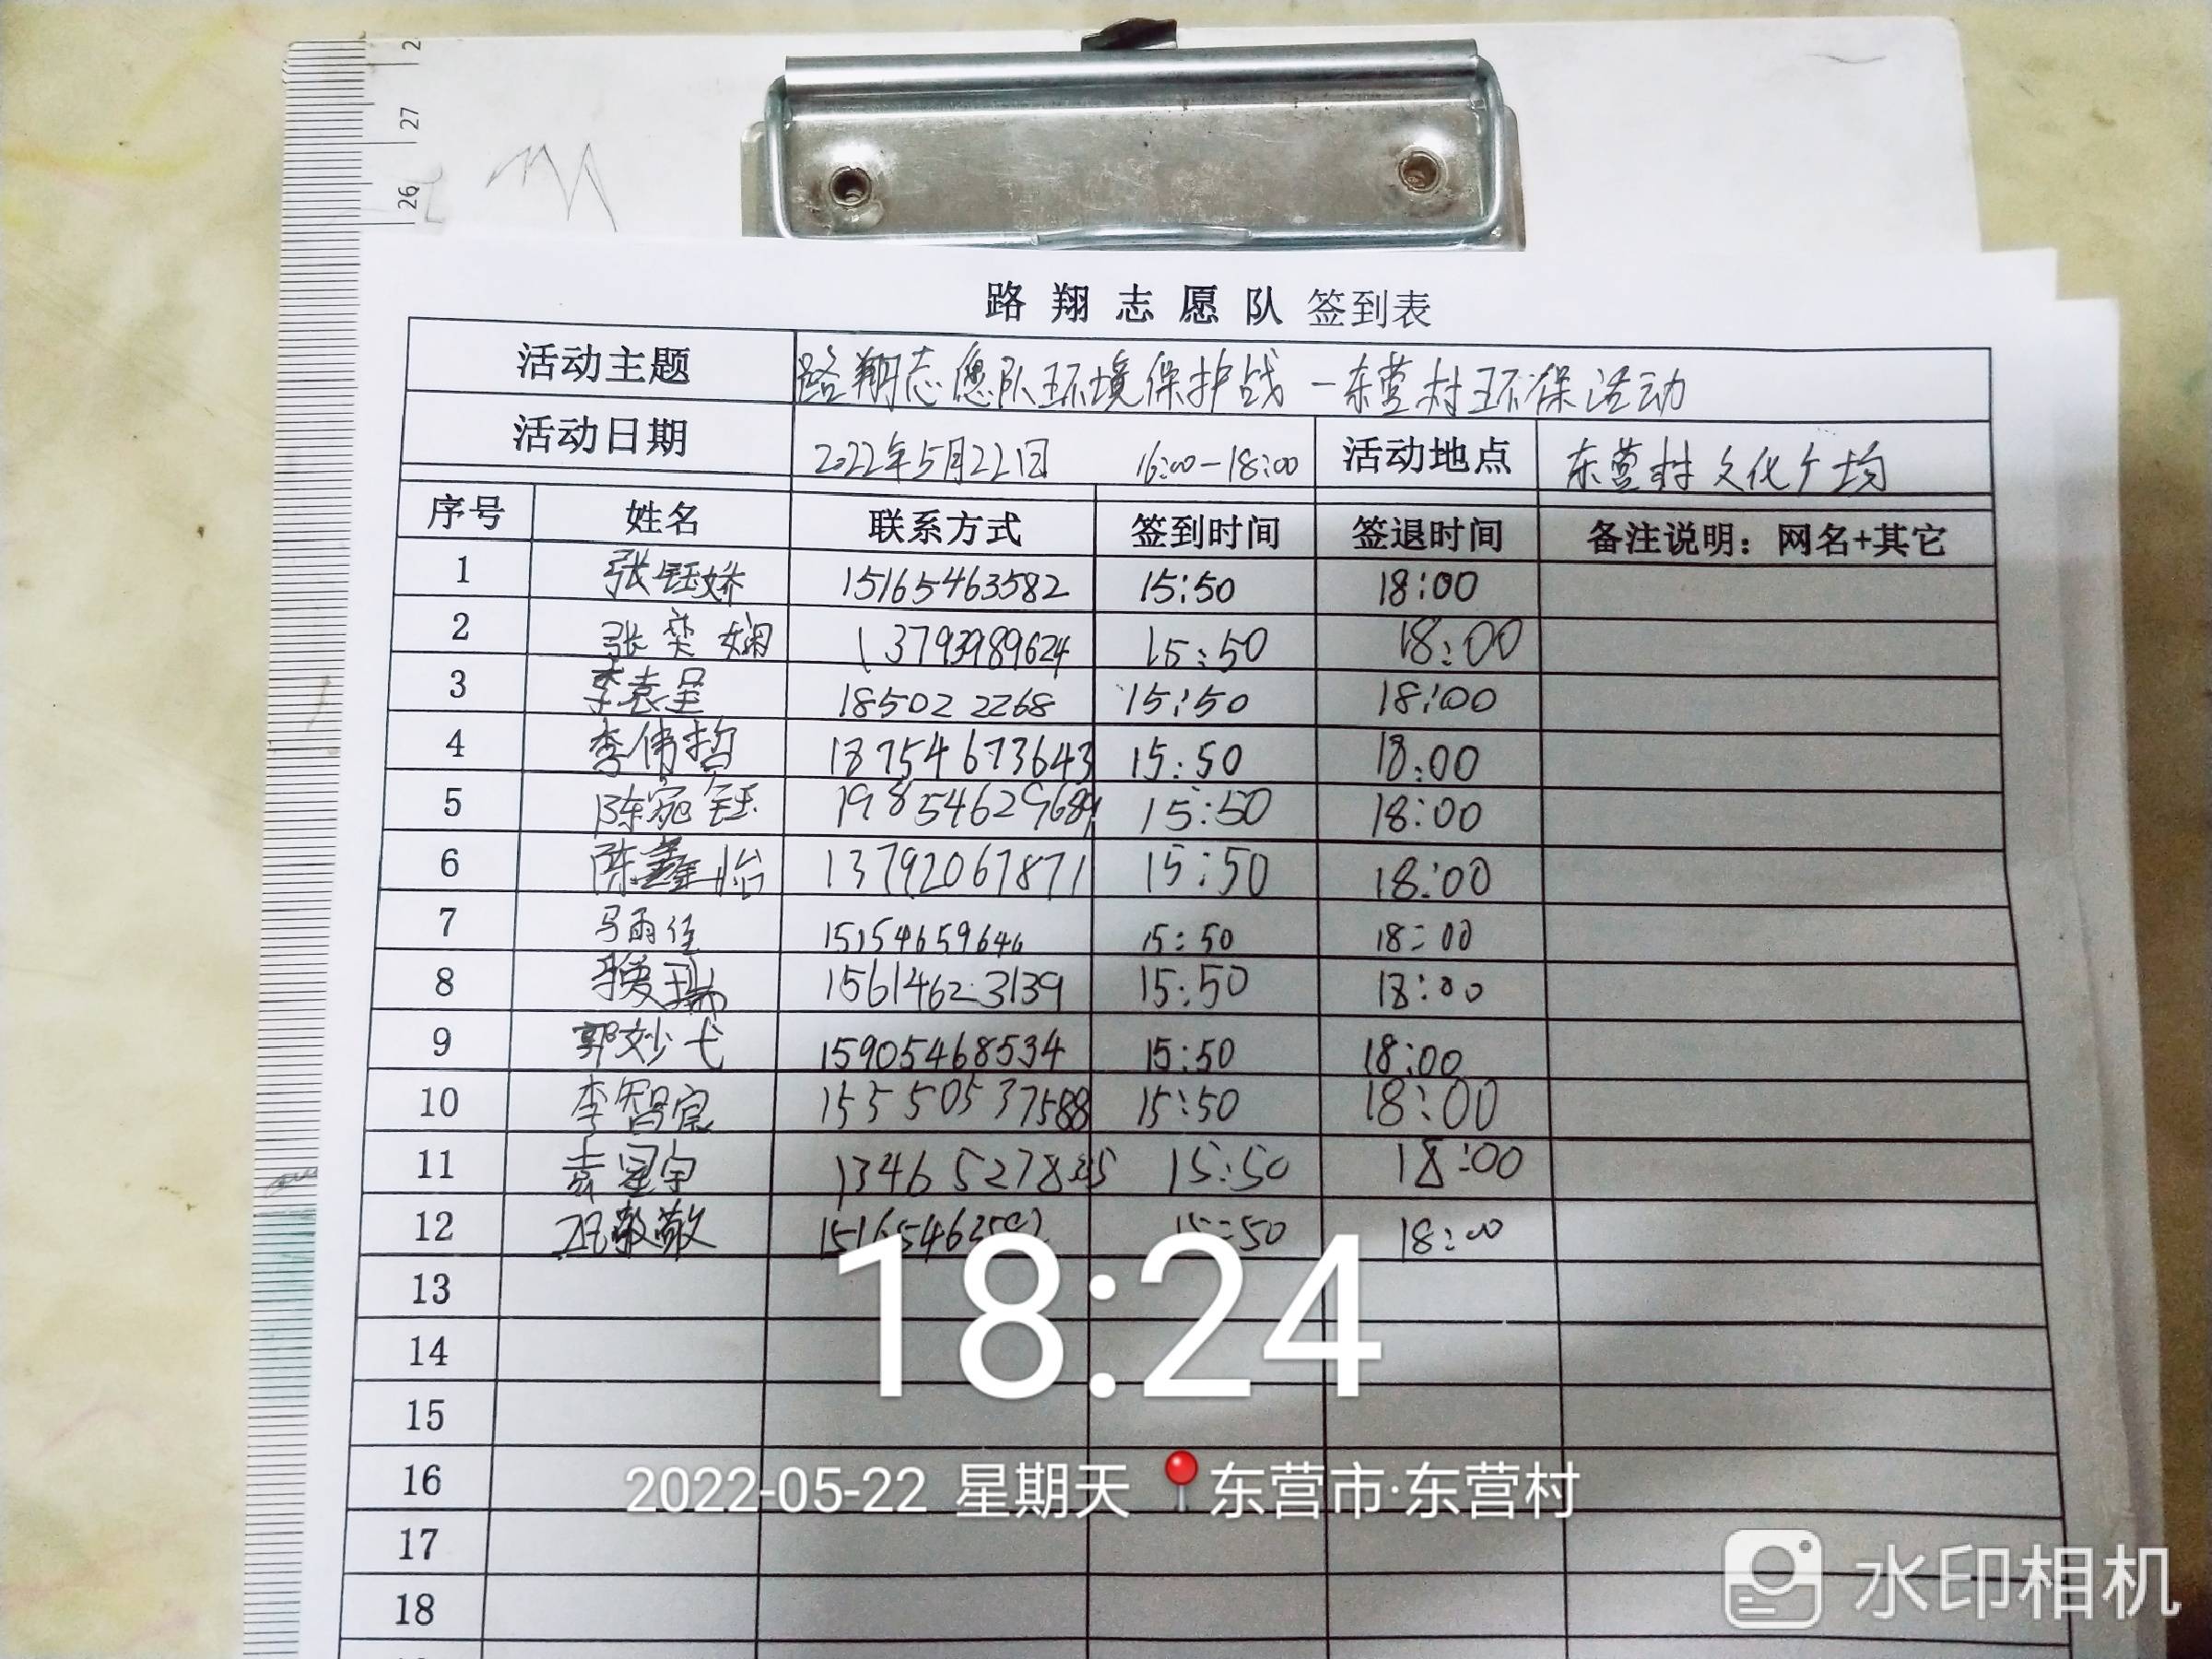 2
27
26
路翔志愿队 签到表
活动主题 路翔志愿队环境保护战-东营村环保活动
活动日期 2022年5月22日 16:00-18:00 活动地点 东营村文化广场
序号 姓名 联系方式 签到时间 签退时间 备注说明：网名+其它
1 张钰娇 15165463582 15:50 18:00
2 张奕娴 13793989624 15:50 18:00
3 李袁呈 185022268 15:50 18:00
4 李伟哲 18754673643 15:50 18:00
5 陈宛钰 15:50 18:00
6 陈鑫怡 13792067871 15:50 18:00
7 马雨佳 15154659646 15:50 18:00
8 15614623139 15:50 18:00
9 郭妙弋 15905468534 15:50 18:00
10 李智宸 15550537588 15:50 18:00
11 袁星宇 15:50 18:00
12 敬敬 15:50 18:00
13
18:24
14
15
16
2022-05-22 星期天 东营市·东营村
17
18
水印相机